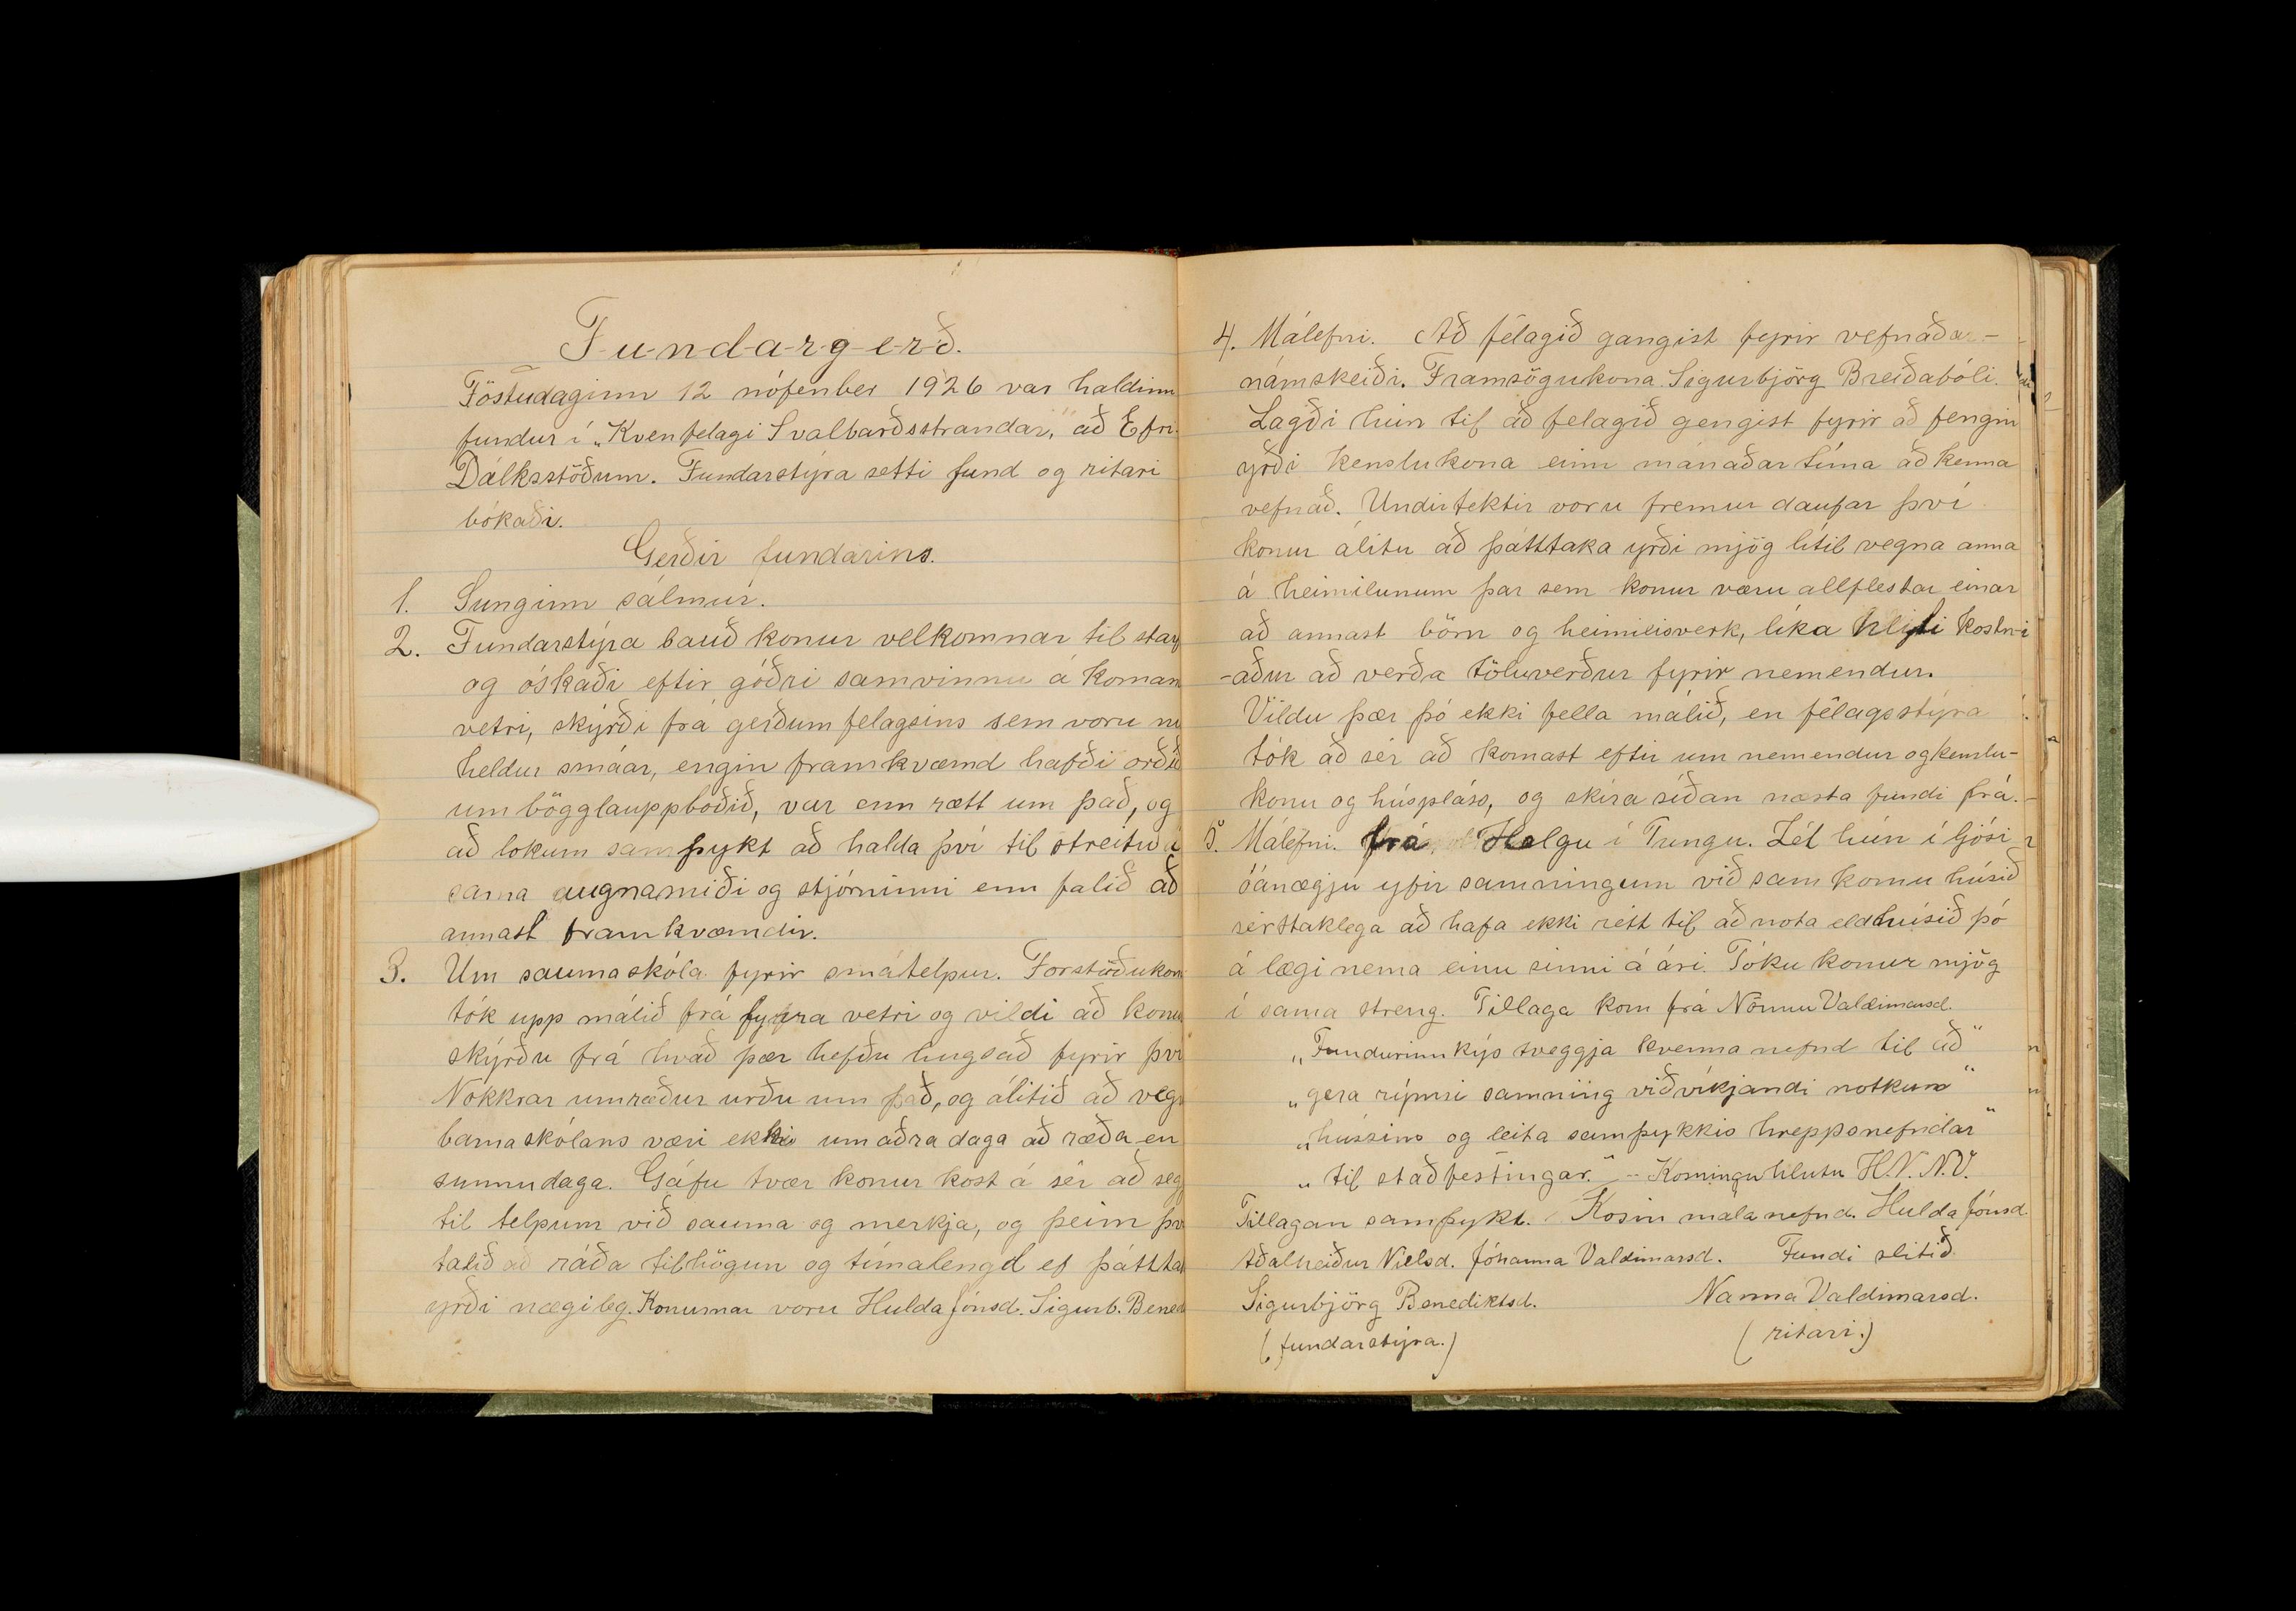 Fundargerð.
Föstudaginn 12 nófenber 1926 var haldinn
fundur í „Kvenfelagi Svalbarðsstrandar," að Efri
Dálksstöðum. Fundarstýra setti fund og ritari
bókaði.
Gerðir fundarins.
1. Sunginn sálmur.
2. Fundarstýra bauð konur velkomnar til star
og óskaði eftir góðri samvinnu á koman
vetri, skýrði frá gerðum felagsins sem voru
heldur smáar, engin framkvæmd hafði orðið
um bögglauppboðið, var enn rætt um það, og
að lokum samþykt að halda því til streitu í
sama augnamiði og stjórninni enn falið að
annast framkvæmdir.
3. Um saumaskóla fyrir smátelpur. Forstöðukon
tók upp málið frá fyrra vetri og vildi að konu
skýrðu frá hvað þær hefðu hugsað fyrir því
Nokkrar umræður urðu um það, og álitið að vegn
barnaskólans væri ekki um aðra daga að ræða en
sunnudaga. Gáfu tvær konur kost á sér að seg
til telpum við sauma og merkja, og þeim þv
falið að ráða tilhögun og tímalengd ef þátttak
yrði nægileg. Konurnar voru Hulda Jónsd. Sigurb. Bened
4. Málefni. Að félagið gangist fyrir vefnaðar-
námskeiði. Framsögukona Sigurbjörg Breiðabóli.
Lagði hún til að felagið gengist fyrir að fengin
yrði kenslukona einn mánaðar tíma að kenna
vefnað. Undirtektir voru fremur daufar því
konur álitu að þátttaka yrði mjög lítil vegna anna
á heimilunum þar sem konur væru allflestar einar
að annast börn og heimilisverk, líka hlyti kostn-
-aður að verða töluverður fyrir nemendur.
Vildu þær þó ekki fella málið, en félagsstýra
tók að sér að komast eftir um nemendur og kenslu-
konu og húspláss, og skíra síðan næsta fundi frá.
5. Málefni. frá Helgu í Tungu. Lét hún í ljósi
óánægju yfir samningum við samkomu húsið
sérstaklega að hafa ekki rétt til að nota eldhúsið þó
á lægi nema einu sinni á ári. Tóku konur mjög
í sama streng. Tillaga kom frá Nönnu Valdimarsd.
„Fundurinn kýs tveggja kvenna nefnd til að"
„gera rýmri samning viðvíkjandi notkun"
„hússins og leita samþykkis hreppsnefndar"
„til staðfestingar." - Kosningu hlutu H.N. N.V.
Tillagan samþykt. Kosin mála nefnd. Hulda Jónsd.
Aðalheiður Níelsd. Jóhanna Valdimarsd. Fundi slitið
Sigurbjörg Benediktsd. Nanna Valdimarsd.
(fundarstýra.) (ritari.)